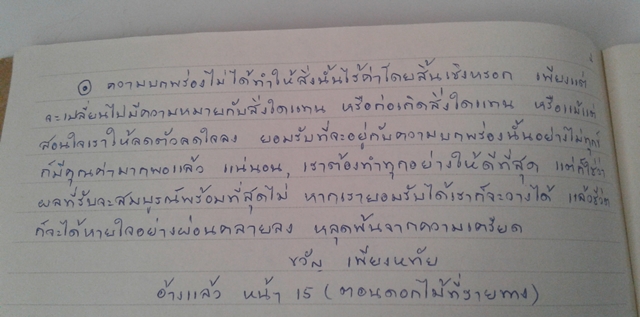 ๏ ความบกพร่องไม่ได้ทำให้สิ่งนั้นไร้ค่าโดยสิ้นเชิงหรอก เพียงแต่
จะเปลี่ยนไปมีความหมายกับสิ่งใดแทน หรือก่อเกิดสิ่งใดแทน หรือแม้แต่
สอนใจเราให้ลดตัวลดใจลง ยอมรับที่จะอยู่กับความบกพร่องนั้นอย่างไม่ทุกข์
ก็มีคุณค่ามากพอแล้ว แน่นอน, เราต้องทำทุกอย่างให้ดีที่สุด แต่ก็ใช่ว่า
ผลที่รับจะสมบูรณ์พร้อมที่สุดไม่ หากเรายอมรับได้เราก็จะวางได้ แล้วชีวิต
ก็จะได้หายใจอย่างผ่อนคลายลง หลุดพ้นจากความเครียด
ขวัญ เพียงหทัย
อ้างแล้ว หน้า 15 (ตอนดอกไม้ที่รายทาง)